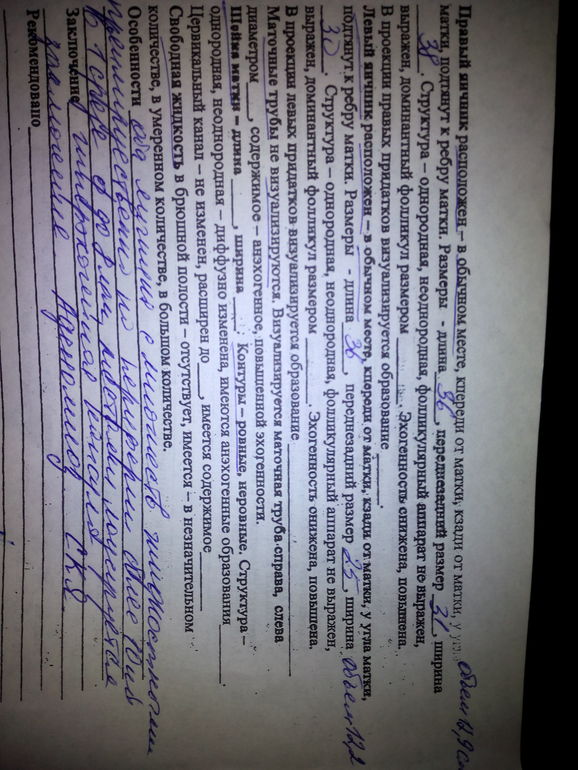 Правый яичник расположен – в обычном месте, кпереди от матки, кзади от матки, у угла
матки, подтянут к ребру матки. Размеры - длина 36, переднезадний размер 31, ширина объем 12,9 см
38. Структура – однородная, неоднородная, фолликулярный аппарат не выражен,
выражен, доминантный фолликул размером ____. Эхогенность снижена, повышена.
В проекции правых придатков визуализируется образование ____.
Левый яичник расположен – в обычном месте, кпереди от матки, кзади от матки, у угла матки,
подтянут к ребру матки. Размеры - длина 36, переднезадний размер 25, ширина объем 12,2
30. Структура – однородная, неоднородная, фолликулярный аппарат не выражен,
выражен, доминантный фолликул размером ____. Эхогенность снижена, повышена.
В проекции левых придатков визуализируется образование ____
Маточные трубы не визуализируются. Визуализируется маточная труба справа, слева
диаметром____, содержимое – анэхогенное, повышенной эхогенности.
Шейка матки – длина ____, ширина ____. Контуры – ровные, неровные, Структура –
однородная, неоднородная – диффузно изменена, имеются анэхогенные образования____
Цервикальный канал – не изменен, расширен до____, имеется содержимое____
Свободная жидкость в брюшной полости – отсутствует, имеется – в незначительном
количестве, в умеренном количестве, в большом количестве.
Особенности оба яичника с множеств. жидкостными
преимущественно по периферии более 10
в 1 срезе d до 8 мм
гиперэхогенная капсула
Заключение
Аденомиоз. СКЯ
Рекомендовано